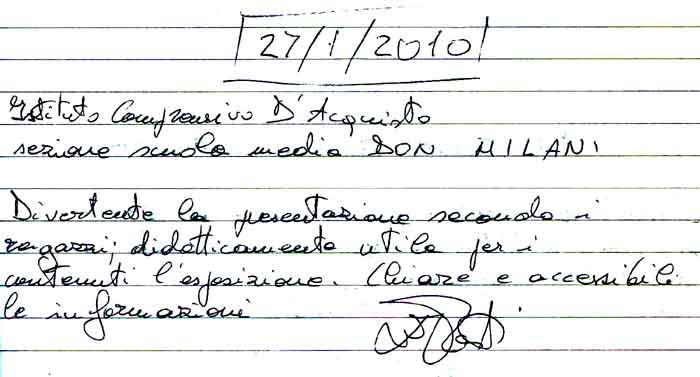 27/1/2010
Istituto Comprensivo D'Acquisto
sezione scuola media DON MILANI
Divertente la presentazione secondo i
ragazzi; didatticamente utile per i
contenuti l'esposizione. Chiare e accessibili
le informazioni